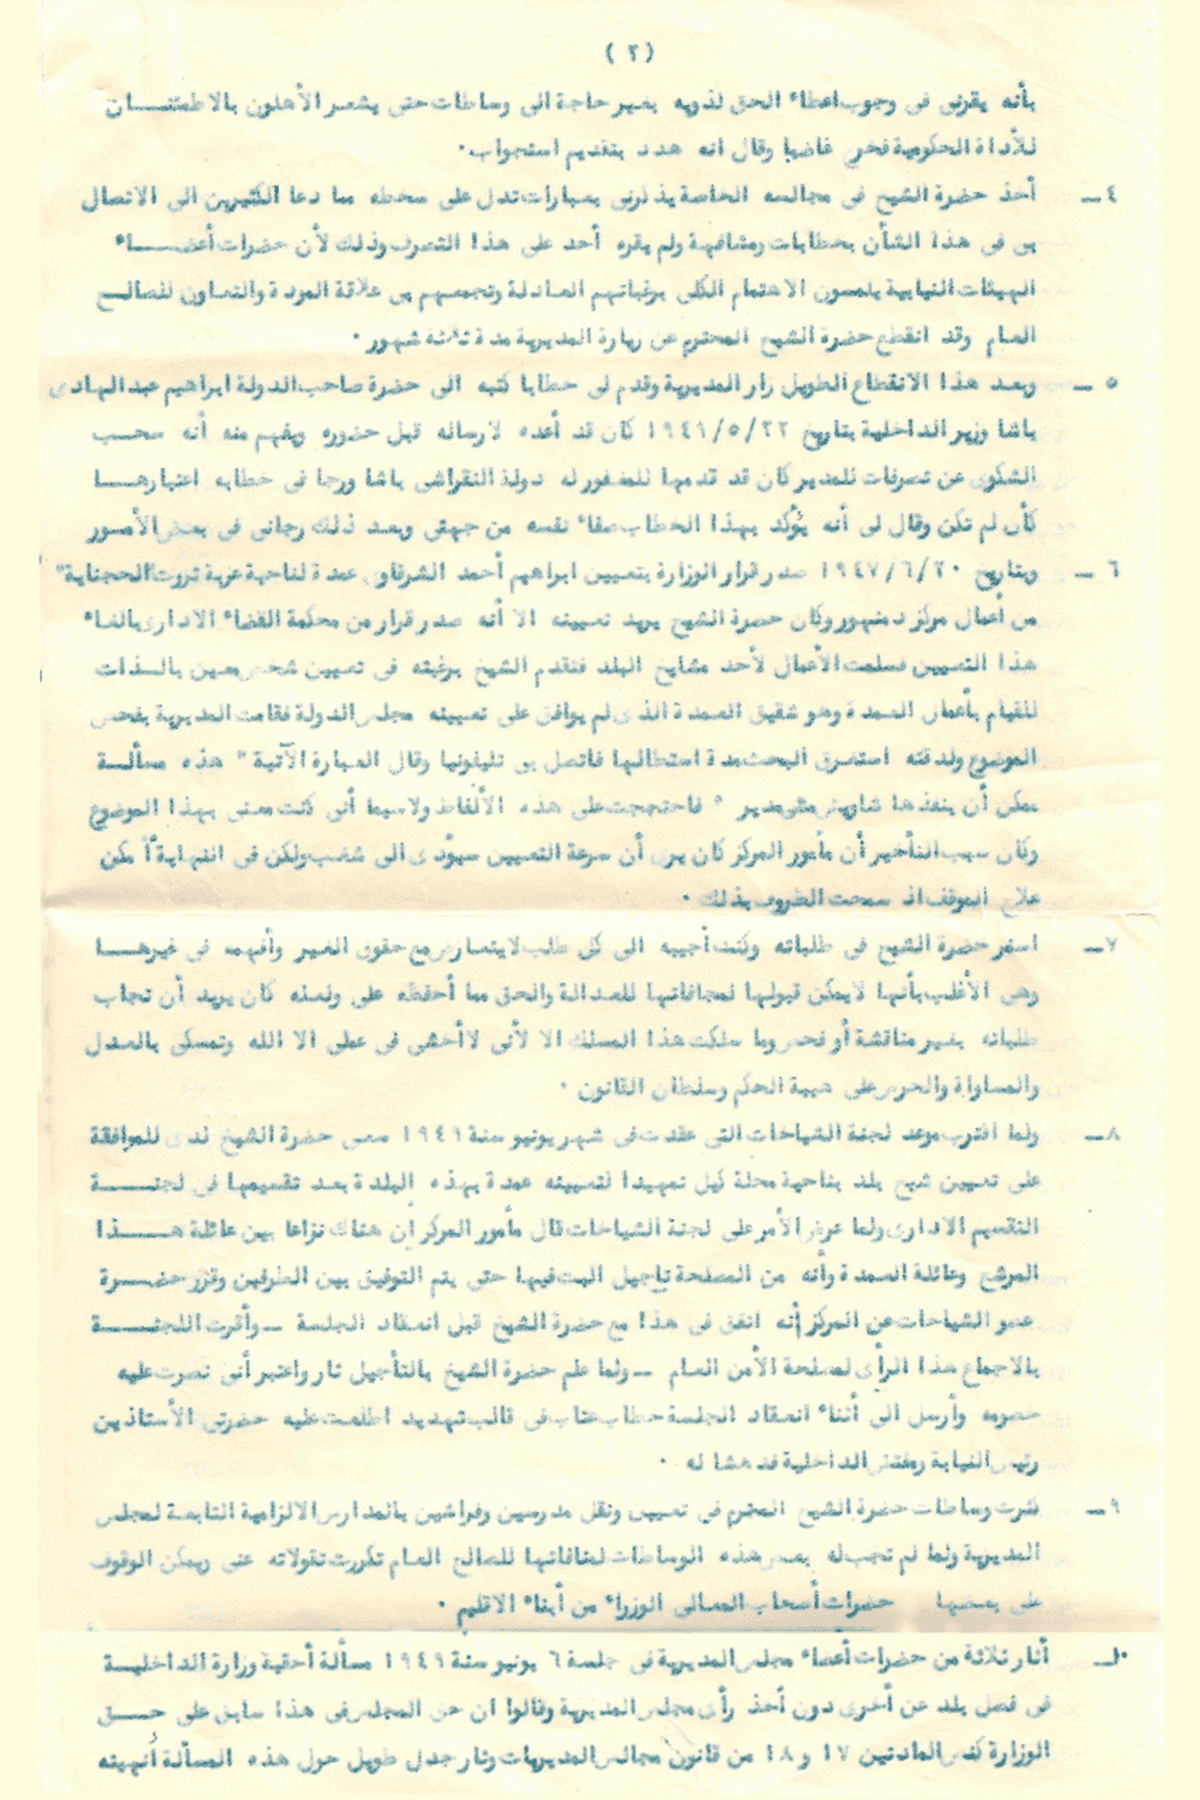 ( ٢ )
بأنه يقرنى فى وجوب اعطاء الحق لذويه بغير حاجة الى وساطات حتى يشعر الأهلون بالاطمئنــــان
للأداة الحكومية فخرج غاضبا وقال انه هدد بتقديم استجواب ٠
٤ ــ أخذ حضرة الشيخ فى مجالسه الخاصة يذكرنى بعبارات تدل على سخطه مما دعا الكثيرين الى الاتصال
بى فى هذا الشأن بخطابات ومشافهة ولم يقره أحد على هذا التصرف وذلك لأن حضرات أعضــــاء
الهيئات النيابية يلمسون الاهتمام الكلى برغباتهم العادلة وتجمعهم بى علاقة المودة والتعاون للصالــح
العام وقد انقطع حضرة الشيخ المحترم عن زيارة المديرية مدة ثلاثة شهور ٠
٥ ــ وبعد هذا الانقطاع الطويل زار المديرية وقدم لى خطابا كتبه الى حضرة صاحب الدولة ابراهيم عبد الهادى
باشا وزير الداخلية بتاريخ ١٩٤٩/٥/٢٢ كان قد أعده لارساله قبل حضوره ويفهم منه أنه سحــب
الشكوى عن تصرفات للمدير كان قد قدمها للمغفور له دولة النقراشى باشا ورجا فى خطابه اعتبارهــا
كأن لم تكن وقال لى أنه يؤكد بهذا الخطاب صفاء نفسه من جهتى وبعد ذلك رجانى فى بعض الأمــور
٦ ــ وبتاريخ ١٩٤٧/٦/٢٠ صدر قرار الوزارة بتعيين ابراهيم أحمد الشرقاوى عمدة لناحية عزبة ثروت "الحجناية"
من أعمال مركز دمنهور وكان حضرة الشيخ يريد تعيينه الا أنه صدر قرار من محكمة القضاء الادارى بالغاء
هذا التعيين فسلمت الأعمال لأحد مشايخ البلد فتقدم الشيخ برغبته فى تعيين شخص معين بالــذات
للقيام بأعمال العمدة وهو شقيق العمدة الذى لم يوافق على تعيينه مجلس الدولة فقامت المديرية بفحص
الموضوع ولدقته استغرق البحث مدة استطالها فاتصل بى تليفونيا وقال العبارة الآتية " هذه مسألــة
يمكن أن ينفذها شاويش مش مدير " فاحتججت على هذه الألفاظ ولاسيما أنى كنت معنى بهذا الموضوع
وكان سبب التأخير أن مأمور المركز كان يرى أن سرعة التعيين سيؤدى الى شغب ولكن فى النهاية أمكن
علاج الموقف اذ سمحت الظروف بذلك ٠
٧ ــ استمر حضرة الشيخ فى طلباته وكنت أجيبه الى كل طلب لا يتعارض مع حقوق الغير وأفهمه فى غيرهــا
وهى الأغلب بأنها لا يمكن قبولها لمجافاتها للعدالة والحق مما أحفظه على ولعله كان يريد أن تجاب
طلباته بغير مناقشة أو فحص وما سلكت هذا المسلك الا لأنى لا أخشى فى عملى الا الله وتمسكى بالعدل
والمساواة والحرص على هيبة الحكم وسلطان القانون ٠
٨ ــ ولما اقترب موعد لجنة الشياخات التى عقدت فى شهر يونيو سنة ١٩٤٩ سعى حضرة الشيخ لدى للموافقة
على تعيين شيخ بلد بناحية محلة كيل تمهيدا لتعيينه عمدة بهذه البلدة بعد تقسيمها فى لجنــــة
التقسيم الادارى ولما عرض الأمر على لجنة الشياخات قال مأمور المركز ان هناك نزاعا بين عائلة هـــذا
المرشح وعائلة العمدة وأنه من المصلحة تأجيل البت فيها حتى يتم التوفيق بين الطرفين وقرر حضــرة
عضو الشياخات عن المركز أنه اتفق فى هذا مع حضرة الشيخ قبل انعقاد الجلسة ــ وأقرت اللجنــــة
بالاجماع هذا الرأى لمصلحة الأمن العام ــ ولما علم حضرة الشيخ بالتأجيل ثار واعتبر أنى نصرت عليه
خصومه وأرسل الى أثناء انعقاد الجلسة خطاب عتاب فى قالب تهديد اطلعت عليه حضرتى الأستاذين
رئيس النيابة ومفتش الداخلية فدهشا له ٠
٩ ــ كثرت وساطات حضرة الشيخ المحترم فى تعيين ونقل مدرسين وفراشين بالمدارس الالزامية التابعة لمجلس
المديرية ولما لم تجب له بعض هذه الوساطات لمنافاتها للصالح العام تكررت تقولاته عنى ويمكن الوقوف
على بعضها حضرات أصحاب المعالى الوزراء من أبناء الاقليم ٠
١٠ــ أثار ثلاثة من حضرات أعضاء مجلس المديرية فى جلسة ٦ يونيو سنة ١٩٤٩ مسألة أحقية وزارة الداخليــة
فى فصل بلد عن أخرى دون أخذ رأى مجلس المديرية وقالوا ان حق المجلس فى هذا سابق على حــق
الوزارة كنص المادتين ١٧ و ١٨ من قانون مجالس المديريات وثار جدل طويل حول هذه المسألة أنهيته